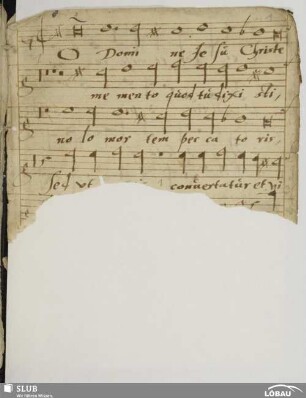 O Domi ne Je sū Christe
me men to quod tu dixi sti,
no lo mor tem pec ca to ris
Sed vt convertatur et vi
SLUB
Wir führen Wissen.
LÖBAU